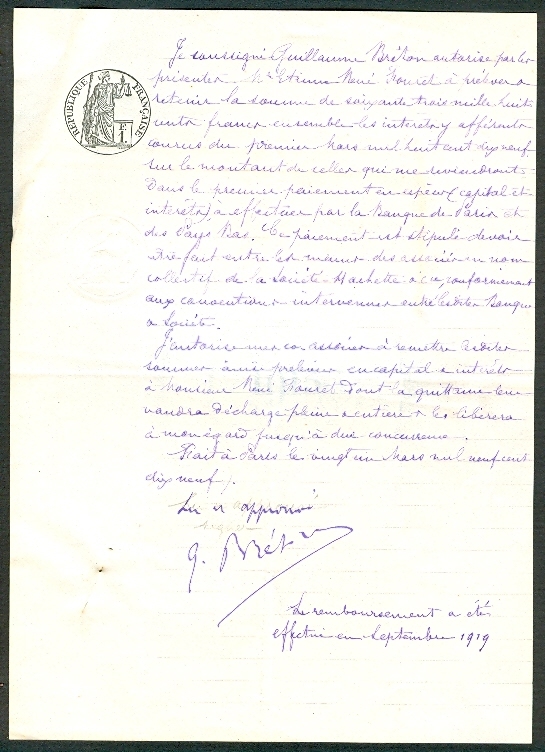 RÉPUBLIQUE FRANÇAISE
F 1
Je soussigné Guillaume Bréton autorise par les
présentes Mr Etienne René Fouret à prélever &
retenir la somme de soixante trois mille huit
cents francs ensemble les intérêts y afférents
courus du premier Mars mil huit cent dix neuf
sur le montant de celles qui me reviendront
Dans le premier paiement en espèces (capital et
intérêts) à effectuer par la Banque de Paris et
des Pays Bas. Ce paiement est stipulé devoir
être fait entre les mains des associés en nom
collectif de la Société Hachette & Cie, conformément
aux conventions intervenues entre lesdites Banque
& Société.
J'autorise mes co associés à remettre lesdites
sommes ainsi prélevées en capital & intérêts
à Monsieur René Fouret Dont la quittance leur
vaudra décharge pleine & entière & les libérera
à mon égard jusqu'à due concurrence.
Fait à Paris le vingt un Mars mil neuf cent
dix neuf.
Lu et approuvé
G. Bréton
Le remboursement a été
effectué en Septembre 1919